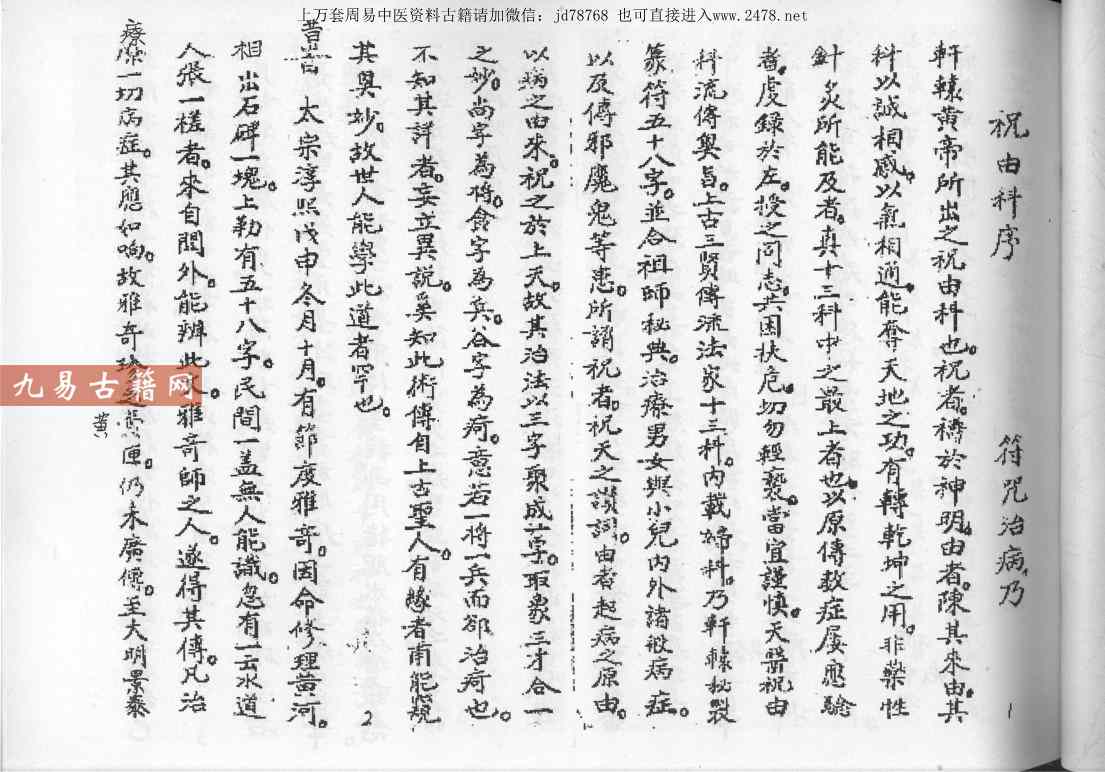 上万套周易中医资料古籍请加微信：jd78768 也可直接进入www.2478.net
祝由科序 符咒治病乃
軒轅黃帝所出之祝由科也。祝者。禱於神明。由者。陳其來由。其
科以誠相感。以氣相通。能奪天地之功。有轉乾坤之用。非藥性
針灸所能及者。真十三科中之最上者也。以原傳數症屡應驗
者。虔錄於左。授之同志。共困扶危。切勿輕褻。當宜謹慎。天醫祝由
科流傳奥旨。上古三賢傳流法家十三科。内載婦科。乃軒轅秘製
篆符五十八字。並合祖師秘典。治療男女與小兒内外諸般病症。
以及傳邪魔鬼等患。所謂祝者。祝天之讚詞。由者起病之原由。
以病之由來。祝之於上天。故其治法以三字聚成一字。取象三才合一
之妙。尚字為將。食字為兵。谷字為疴。意若一將一兵而卻治疴也。
不知其詳者。妄立異説。奚知此術傳自上古聖人。有緣者甫能窺
其異妙。故世人能學此道者罕也。
2
昔 太宗淳熙戊申冬月十月。有節度雅奇。因命修理黃河。
相出石碑一塊。上勒有五十八字。民間一盖無人能識。忽有一云水道
人張一槎者。來自閩外。能辨此。雅奇師之人。遂得其傳。凡治
療 一切病症。其應如响。故雅奇珍 匣。仍未廣傳。至大明景泰
黄
1
九易古籍网